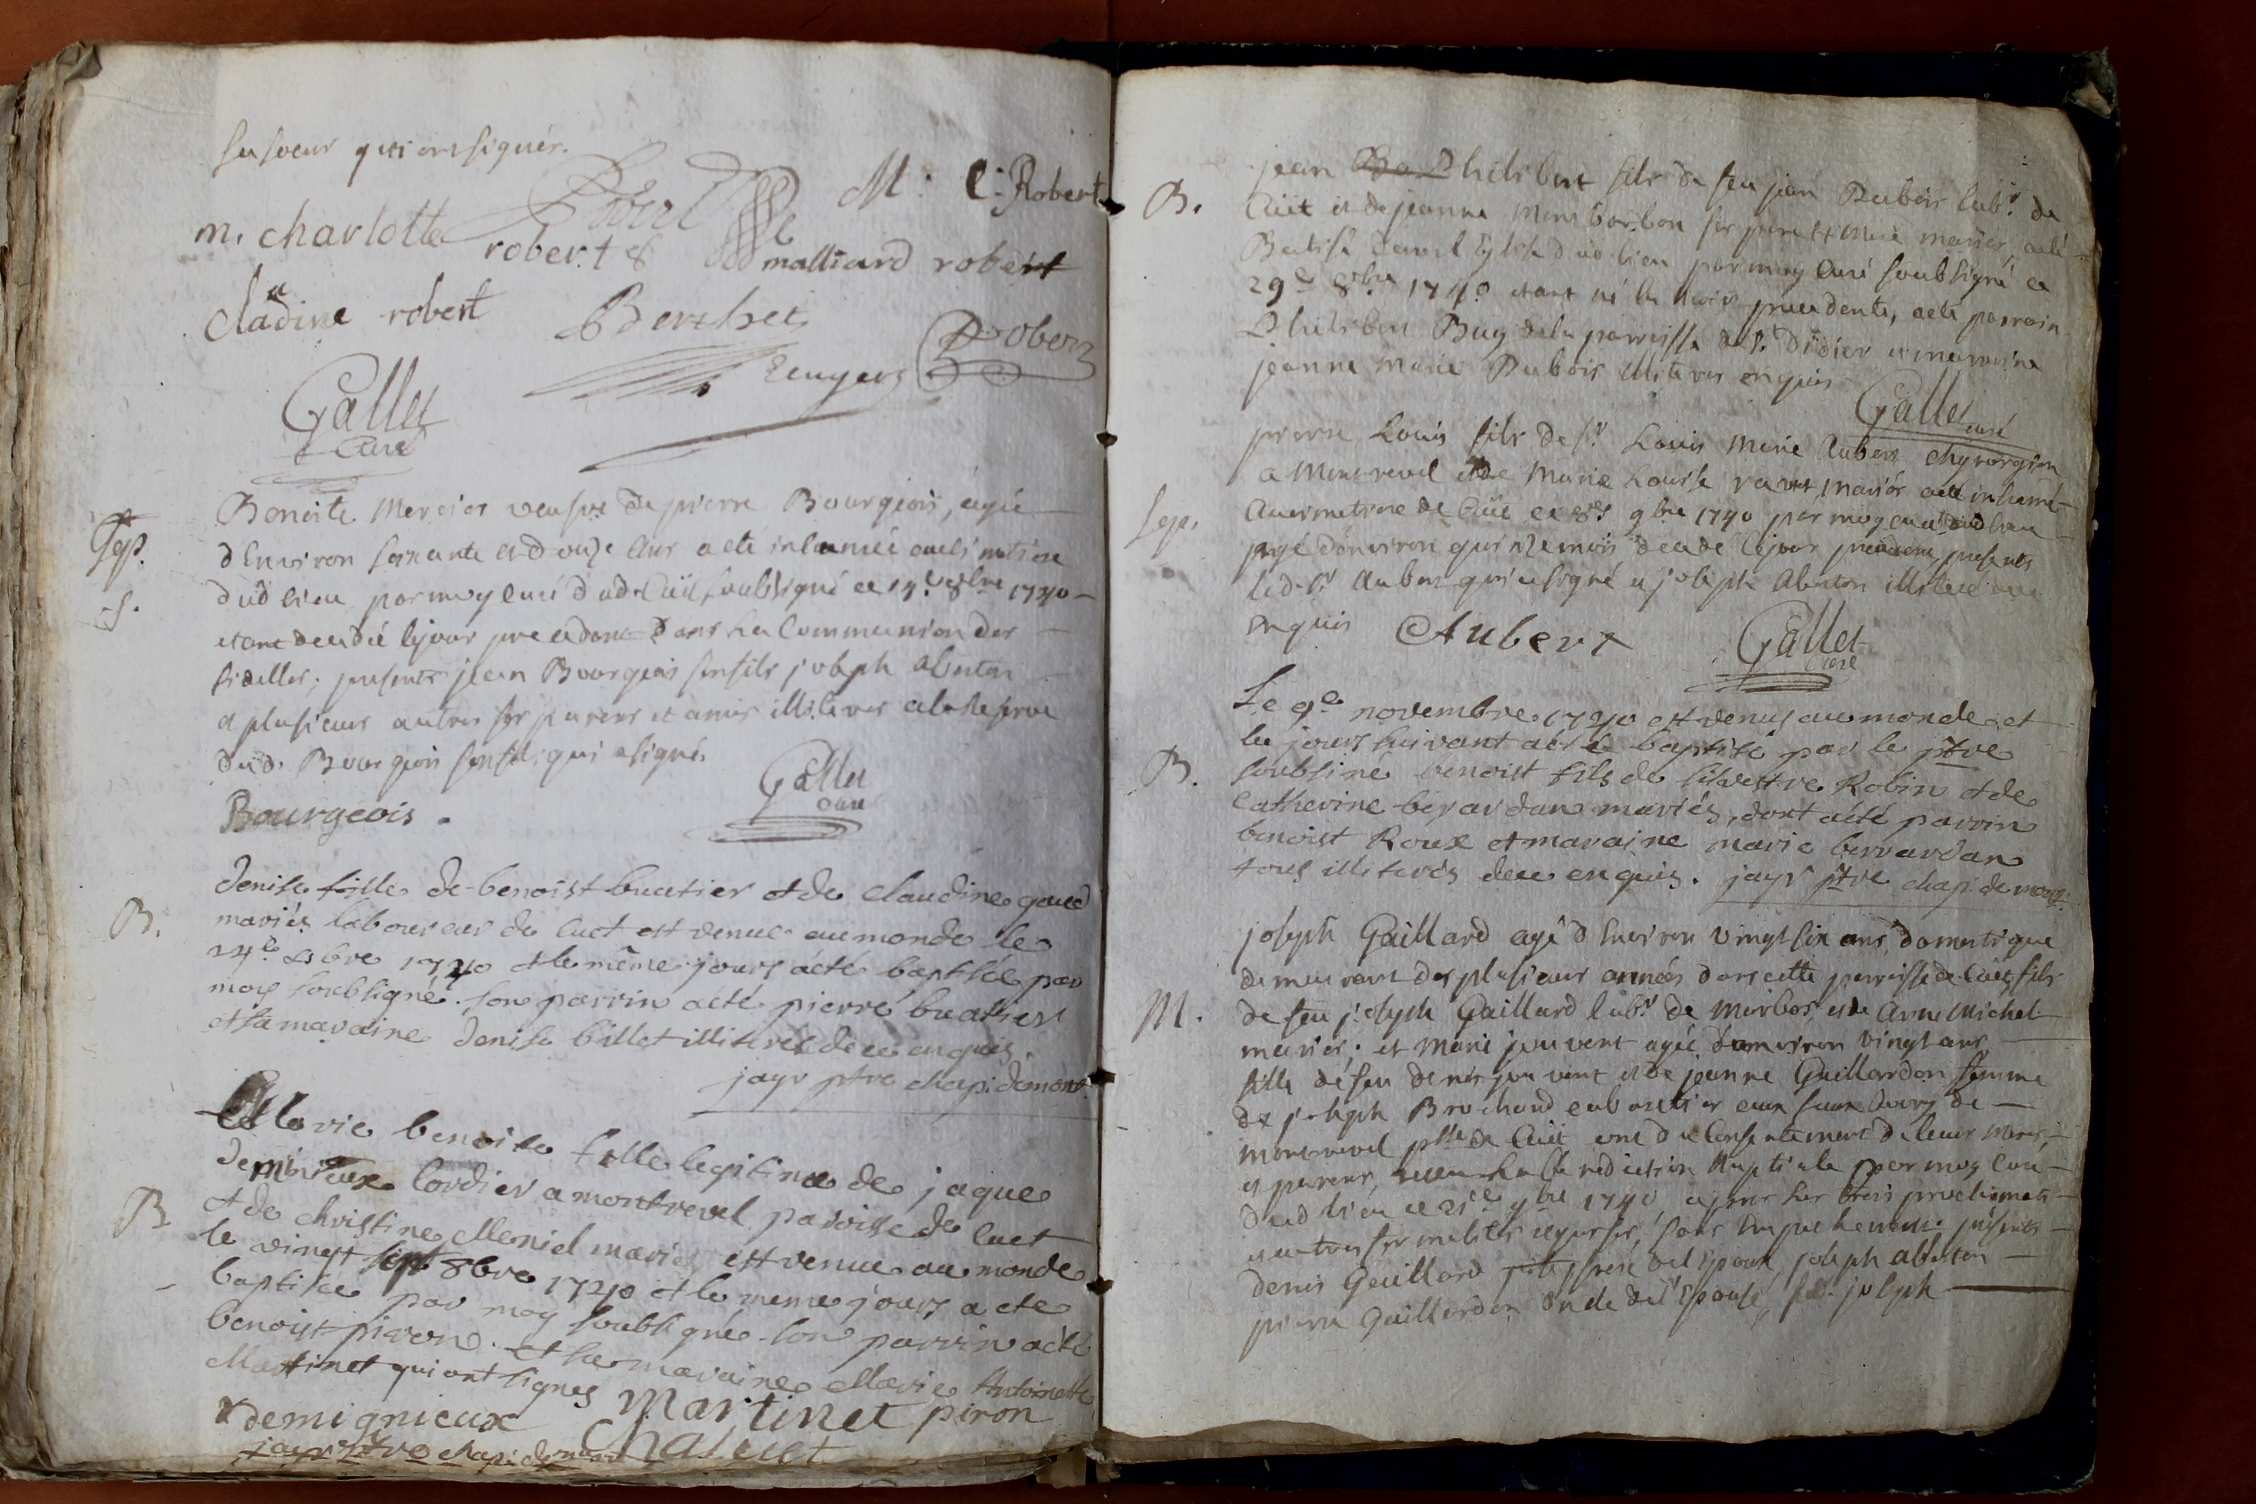 sa soeur qui ont signés.
Robert M. C. Robert
m. charlotte robert & malliard robert
cladine robert Berthet
Robert
Gallet
Curé
Benoite Mercier veufve de pierre Bourgeois, agée
Sep.
d'Environ soixante et douze ans a eté inhumée au cimetiere
dud lieu par moy curé dud Cuët soubsigné ce 14e 8bre 1740
f.
etant decedée le jour precedent dans la Communion des
fidelles; presents jean Bourgeois son fils joseph abeton
et plusieurs autres ses parens et amis illiteres a la reserve
dud. Bourgeois son fils qui a signé.
Gallet
Curé
Bourgeois.
denise fille de benoist buatier et de claudine
B.
mariés laboureur de cuet est venue au monde le
24e 8bre 1740 et le même jours a eté baptisée par
moy soubsigné. son parrin a eté pierre buatier
et sa maraine denise billet illiterés de ce enquis
jayr ptre chapi. de mont.
Marie benoite fille legitime de jaque
demigneux Cordier a montrevel paroisse de cuet
B
et de christine Meniel mariés est venue au monde
le vingt sept 8bre 1740 et le meme jours a ete
baptisée par moy soubsigné son parrin a eté
benoist piron et sa maraine Marie Antoinette
Martinet qui ont signés Martinet piron
demignieux
jayr ptre chapi. de mont
jean philibert fils de feu jean Dubois labr. de
B.
Cuët et de jeanne Montbarbon ses pere et mere mariés, a eté
Batisé dans l'Eglise dud lieu par moy Curé soubsigné ce
29e 8bre 1740 etant né le soir precedent, a eté parrain
Philibert Buy de la parroisse de St. Didier et marraine
jeanne Marie Dubois illiteres enquis
Gallet curé
pierre Louis fils de Sr. Louis Marie Aubert chyrurgien
a Montrevel et de Marie Louise mariés a eté inhumé
Sep.
au cimetiere de Cuët ce 8e 9bre 1740 par moy curé dud lieu
agé d'environ quinze mois decedé le jour precedent, presents
led. Sr Aubert qui a signé et joseph Abeton illiteré
enquis Aubert Gallet
curé
Le 9e novembre 1740 est venus au monde et
le jours suivant a été baptisé par le ptre
B.
soubsiné benoist fils de silvestre Robin et de
Catherine berardan mariés, dont a été parrin
benoist Roux et maraine marie berrardan
tous illiterés de ce enquis. jayr ptre chap. de mont.
joseph Gaillard agé d'Environ vingt six ans domestique
demeurant des plusieurs années dans cette parroisse de Cuët fils
M.
de feu joseph Gaillard labr. de Marbos, et de Anne Michel
mariés; et Marie jouvent agée d'environ vingt ans
fille de feu denis jouvent et de jeanne Gaillardon femme
de joseph Brochand cabaretier aux faux bourg de
montrevel psse de Cuët ont du consentement de leurs meres
et parens, receu la benediction nuptiale par moy Curé
dud lieu ce 21e 9bre 1740, apres les trois proclamats
et autres formalités requises, sans empechement. presents
denis Gaillard frere de l'Epoux, joseph abeton
pierre Gaillardon oncle de l'Epouse, joseph